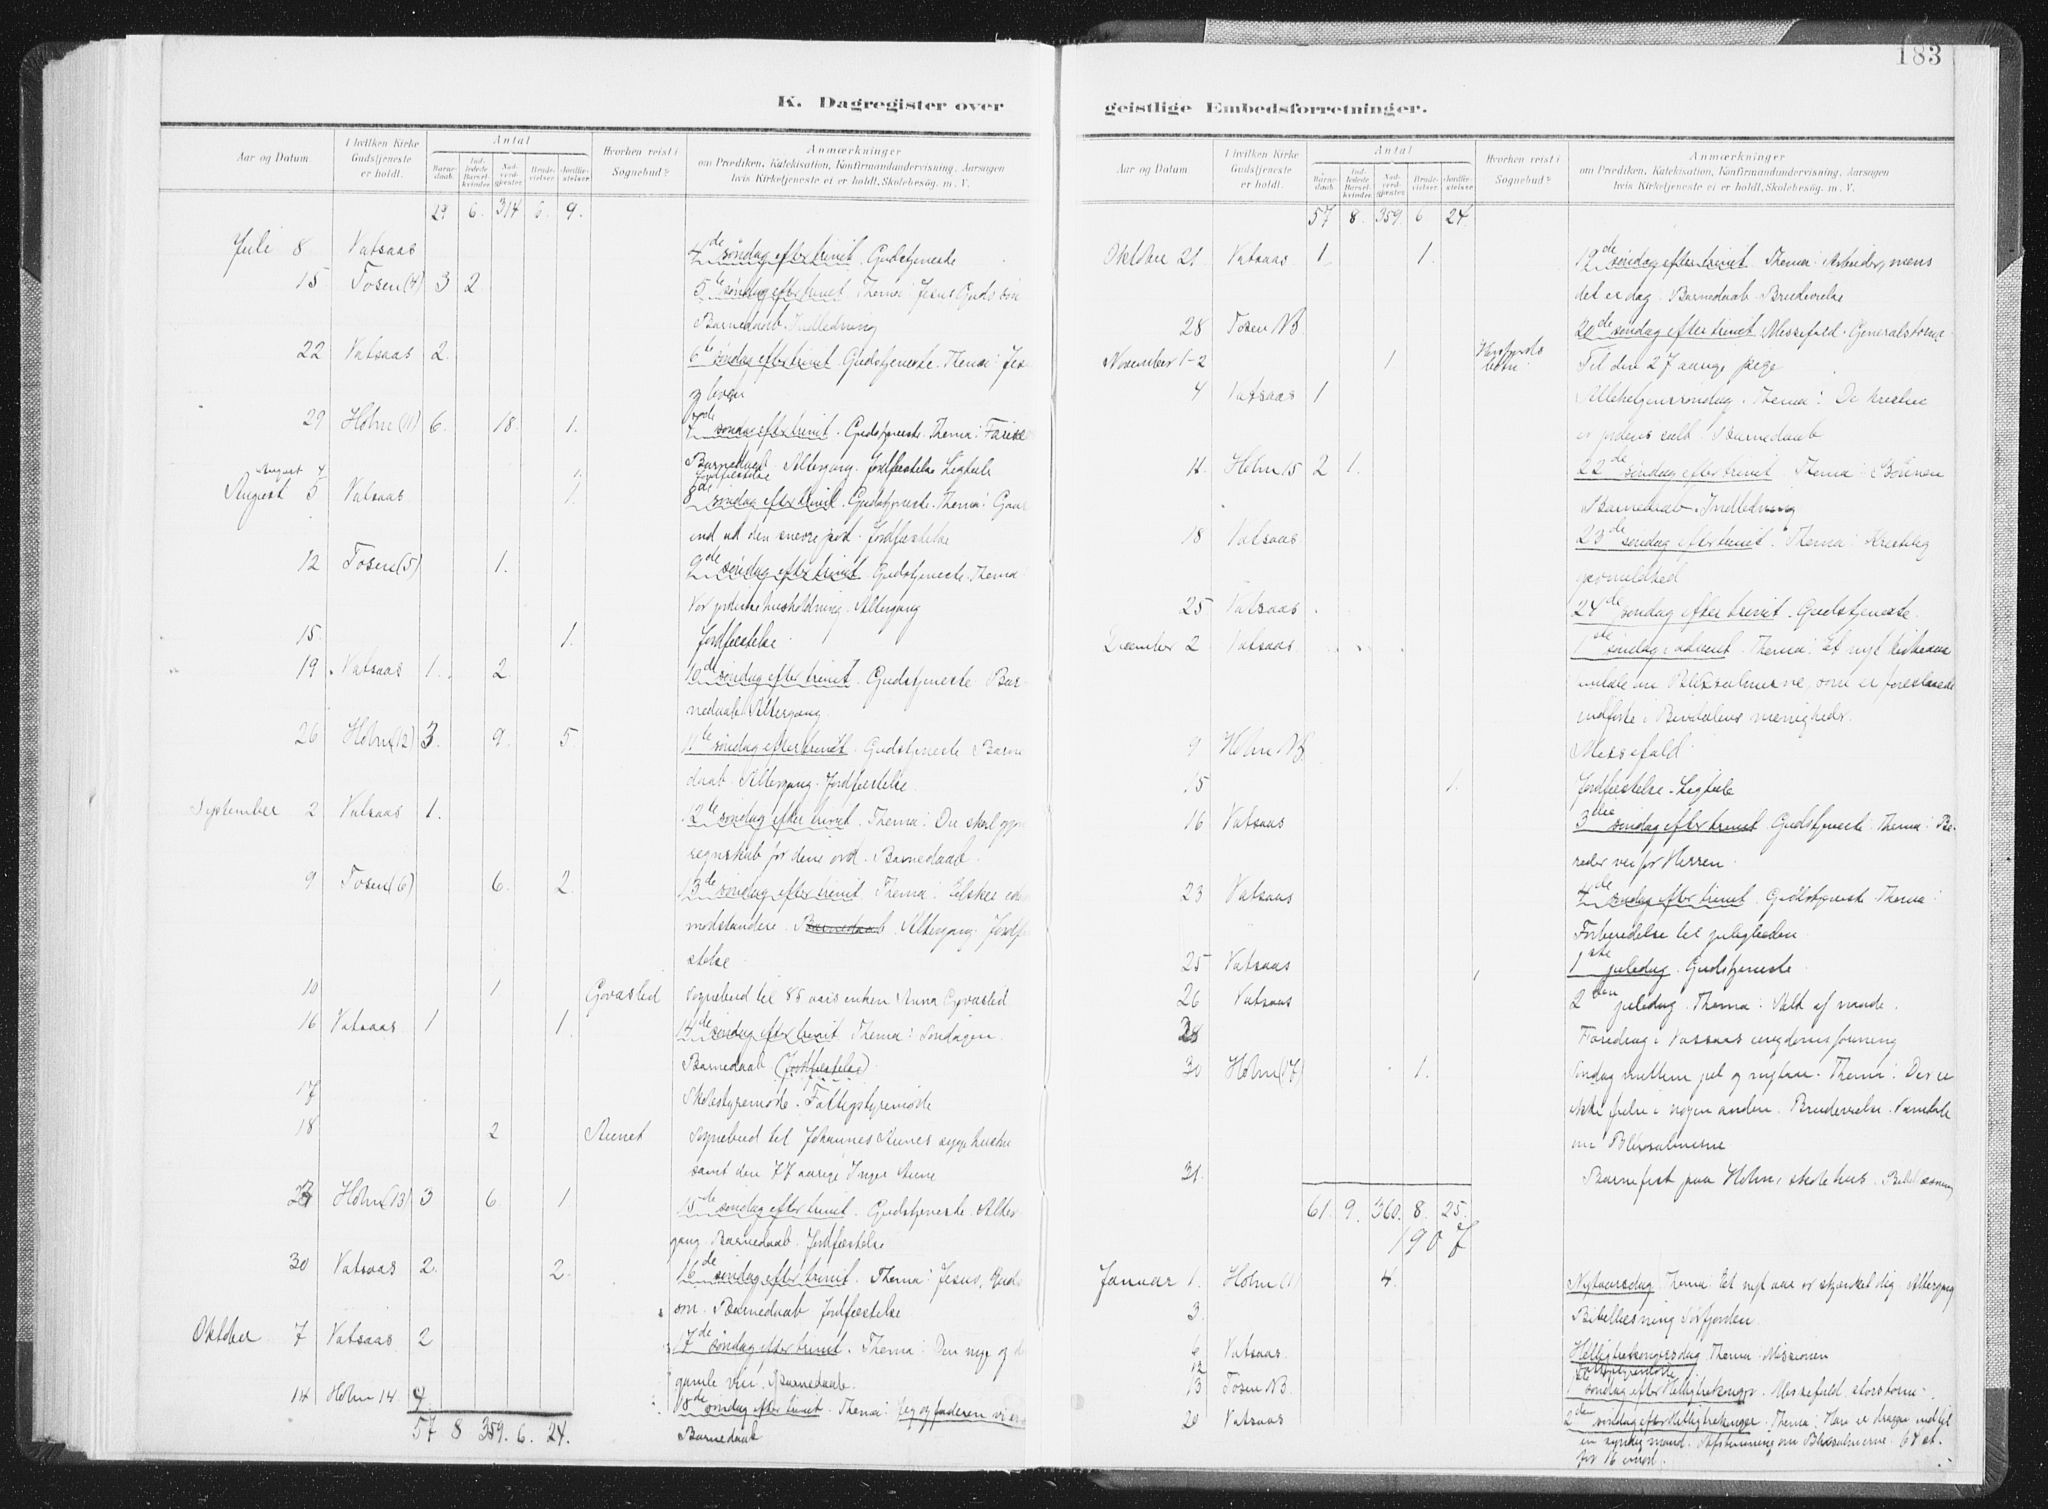 183
K. Dagregister over
geistlige Embedsforretninger.
Aar og Datum
I hvilken Kirke Gudstjeneste er holdt.
Antal
Barne-daab.
Ind-ledede Barsel-kvinder.
Nad-verd-gjester.
Brude-vielser.
Jordfæ-stelser.
Hvorhen reist i Sognebud?
Anmærkninger
om Prædiken, Katekisation, Konfirmandundervisning, Aarsagen
hvis Kirketjeneste ei er holdt, Skolebesøg. m. V.
29 6. 314 6. 9.
Juli 8 Vatsaas 4de søndag efter trinit. Gudstjeneste
15 Tosen (4) 3 2 5te søndag efter trinit Thema: Jesus Guds søn
Barnedaab. Indledning
22 Vatsaas 2. 6te søndag efter trinit Gudstjeneste. Thema:
og loven
29 Holm (11) 6. 18. 1. 7de søndag efter trinit. Gudstjeneste. Thema:
Barnedaab. Altergang. Jordfæstelse Ligtale
August 4 1. Jordfæstelse
August 5 Vatsaas 1. 8de søndag efter trinit. Gudstjeneste. Thema: Gaar
ind ad den snevre port. Jordfæstelse
12 Tosen (5) 1. 9de søndag efter trinit Gudstjeneste. Thema:
Vor jordiske husholdning. Altergang
15. 1. Jordfæstelse.
19 Vatsaas 1. 2. 10de søndag efter trinit. Gudstjeneste Bar-
nedaab Altergang.
26 Holm (12) 3. 9. 5. 11te søndag efter trinit Gudstjeneste Barne
daab. Altergang. Jordfæstelse.
September 2 Vatsaas 1. 12te søndag efter trinit. Thema: Du skal gjøre
regnskab for dine ord. Barnedaab.
9 Tosen (6) 6. 2. 13de søndag efter trinit Thema: Elsker eders
modstandere. Barnedaab. Altergang. Jordfæ
stelse.
10 1 Govasled Sognebud til 85 aars enken Anna Govasled
16 Vatsaas 1 1. 14de søndag efter trinit Thema: Søndagen.
Barnedaab (Jordfæstelse)
17 Skolestyremøde. Fattigstyremøde
18 2 Aunet Sognebud til Johannes Aunes syge hustru
samt den 77 aarige Inger Aune
23 Holm (13) 3 6. 1 15de søndag efter trinit. Gudstjeneste. Alter-
gang. Barnedaab. Jordfæstelse
30 Vatsaas 2. 2. 16de søndag efter trinit. Thema: Jesus, Guds
søn. Barnedaab Jordfæstelse
Oktober 7 Vatsaas 2 17de søndag efter trinit. Thema: Den nye og d
gamle vin. Barnedaab.
14 Holm 14. 4. 18de søndag efter trinit. Thema: Jeg og faderen vi er
57 8 359. 6. 24. Barnedaab
Aar og Datum
I hvilken Kirke Gudstjeneste er holdt.
Antal
Barne-daab.
Ind-ledede Barsel-kvinder.
Nad-verd-gjester.
Brude-vielser.
Jordfæ-stelser.
Hvorhen reist i Sognebud?
Anmærkninger
om Prædiken, Katekisation, Konfirmandundervisning, Aarsagen
hvis Kirketjeneste ei er holdt, Skolebesøg. m. V.
57 8. 359. 6 24.
Oktober 21 Vatsaas 1 1. 19de søndag efter trinit. Thema: Arbeider, mens
det er dag. Barnedaab. Brudevielse
28 Tosen NB 20de søndag efter trinit. Messefald.
November 1-2 1 Til den 27 aarige
4 Vatsaas 1 Allehelgenssøndag. Thema: De kristne
er jordens salt. Barnedaab
11. Holm 15 2 1. 22de søndag efter trinit Thema: Bønnen
Barnedaab. Indledning
18 Vatsaas 23de søndag efter trinit. Thema: Kristelig
25 Vatsaas 24de søndag efter trinit. Gudstjeneste.
December 2 Vatsaas 1ste søndag i advent. Thema: Et nyt kirkeaar
omtale om Blixsalmerne, som er foreslaaede
indførte i Bindalens menigheder.
9 Holm NB. Messefald.
15 1. Jordfæstelse. Ligtale
16 Vatsaas 3die søndag efter trinit Gudstjeneste Thema: Be-
reder vei for Herren.
23 Vatsaas 4de søndag efter trinit. Gudstjeneste Thema:
Forberedelse til juleglæden.
25 Vatsaas 1ste juledag. Gudstjeneste.
26 Vatsaas 2den juledag. Thema: Alt af naade.
28 Foredrag i Vassaas ungdomsforening
30 Holm (17) 1. Søndag mellem jul og nytaar. Thema: Der er
ikke frelse i nogen anden. Brudevielse. Samtale
om Blixsalmerne
31. Barnefest paa Holm, skolehus. Bibellæsning
61. 9. 360. 8. 25.
1907
Januar 1. Holm (1) 4. Nytaarsdag. Thema: Et nyt aar er skjænket dig. Altergang
3. Bibellæsning Sørfjorden.
6 Vatsaas Helligtrekongersdag Thema: Missionen
12 Fattigstyremøde
13 Tosen NB. 1ste søndag efter Helligtrekonger. Messefald, storstorm.
20 Vatsaas 2den søndag efter Helligtrekonger. Thema: Han er dragen ind til
en syndig mand. Afstemning om Blixsalmerne. 64 st.
for 16 imod.